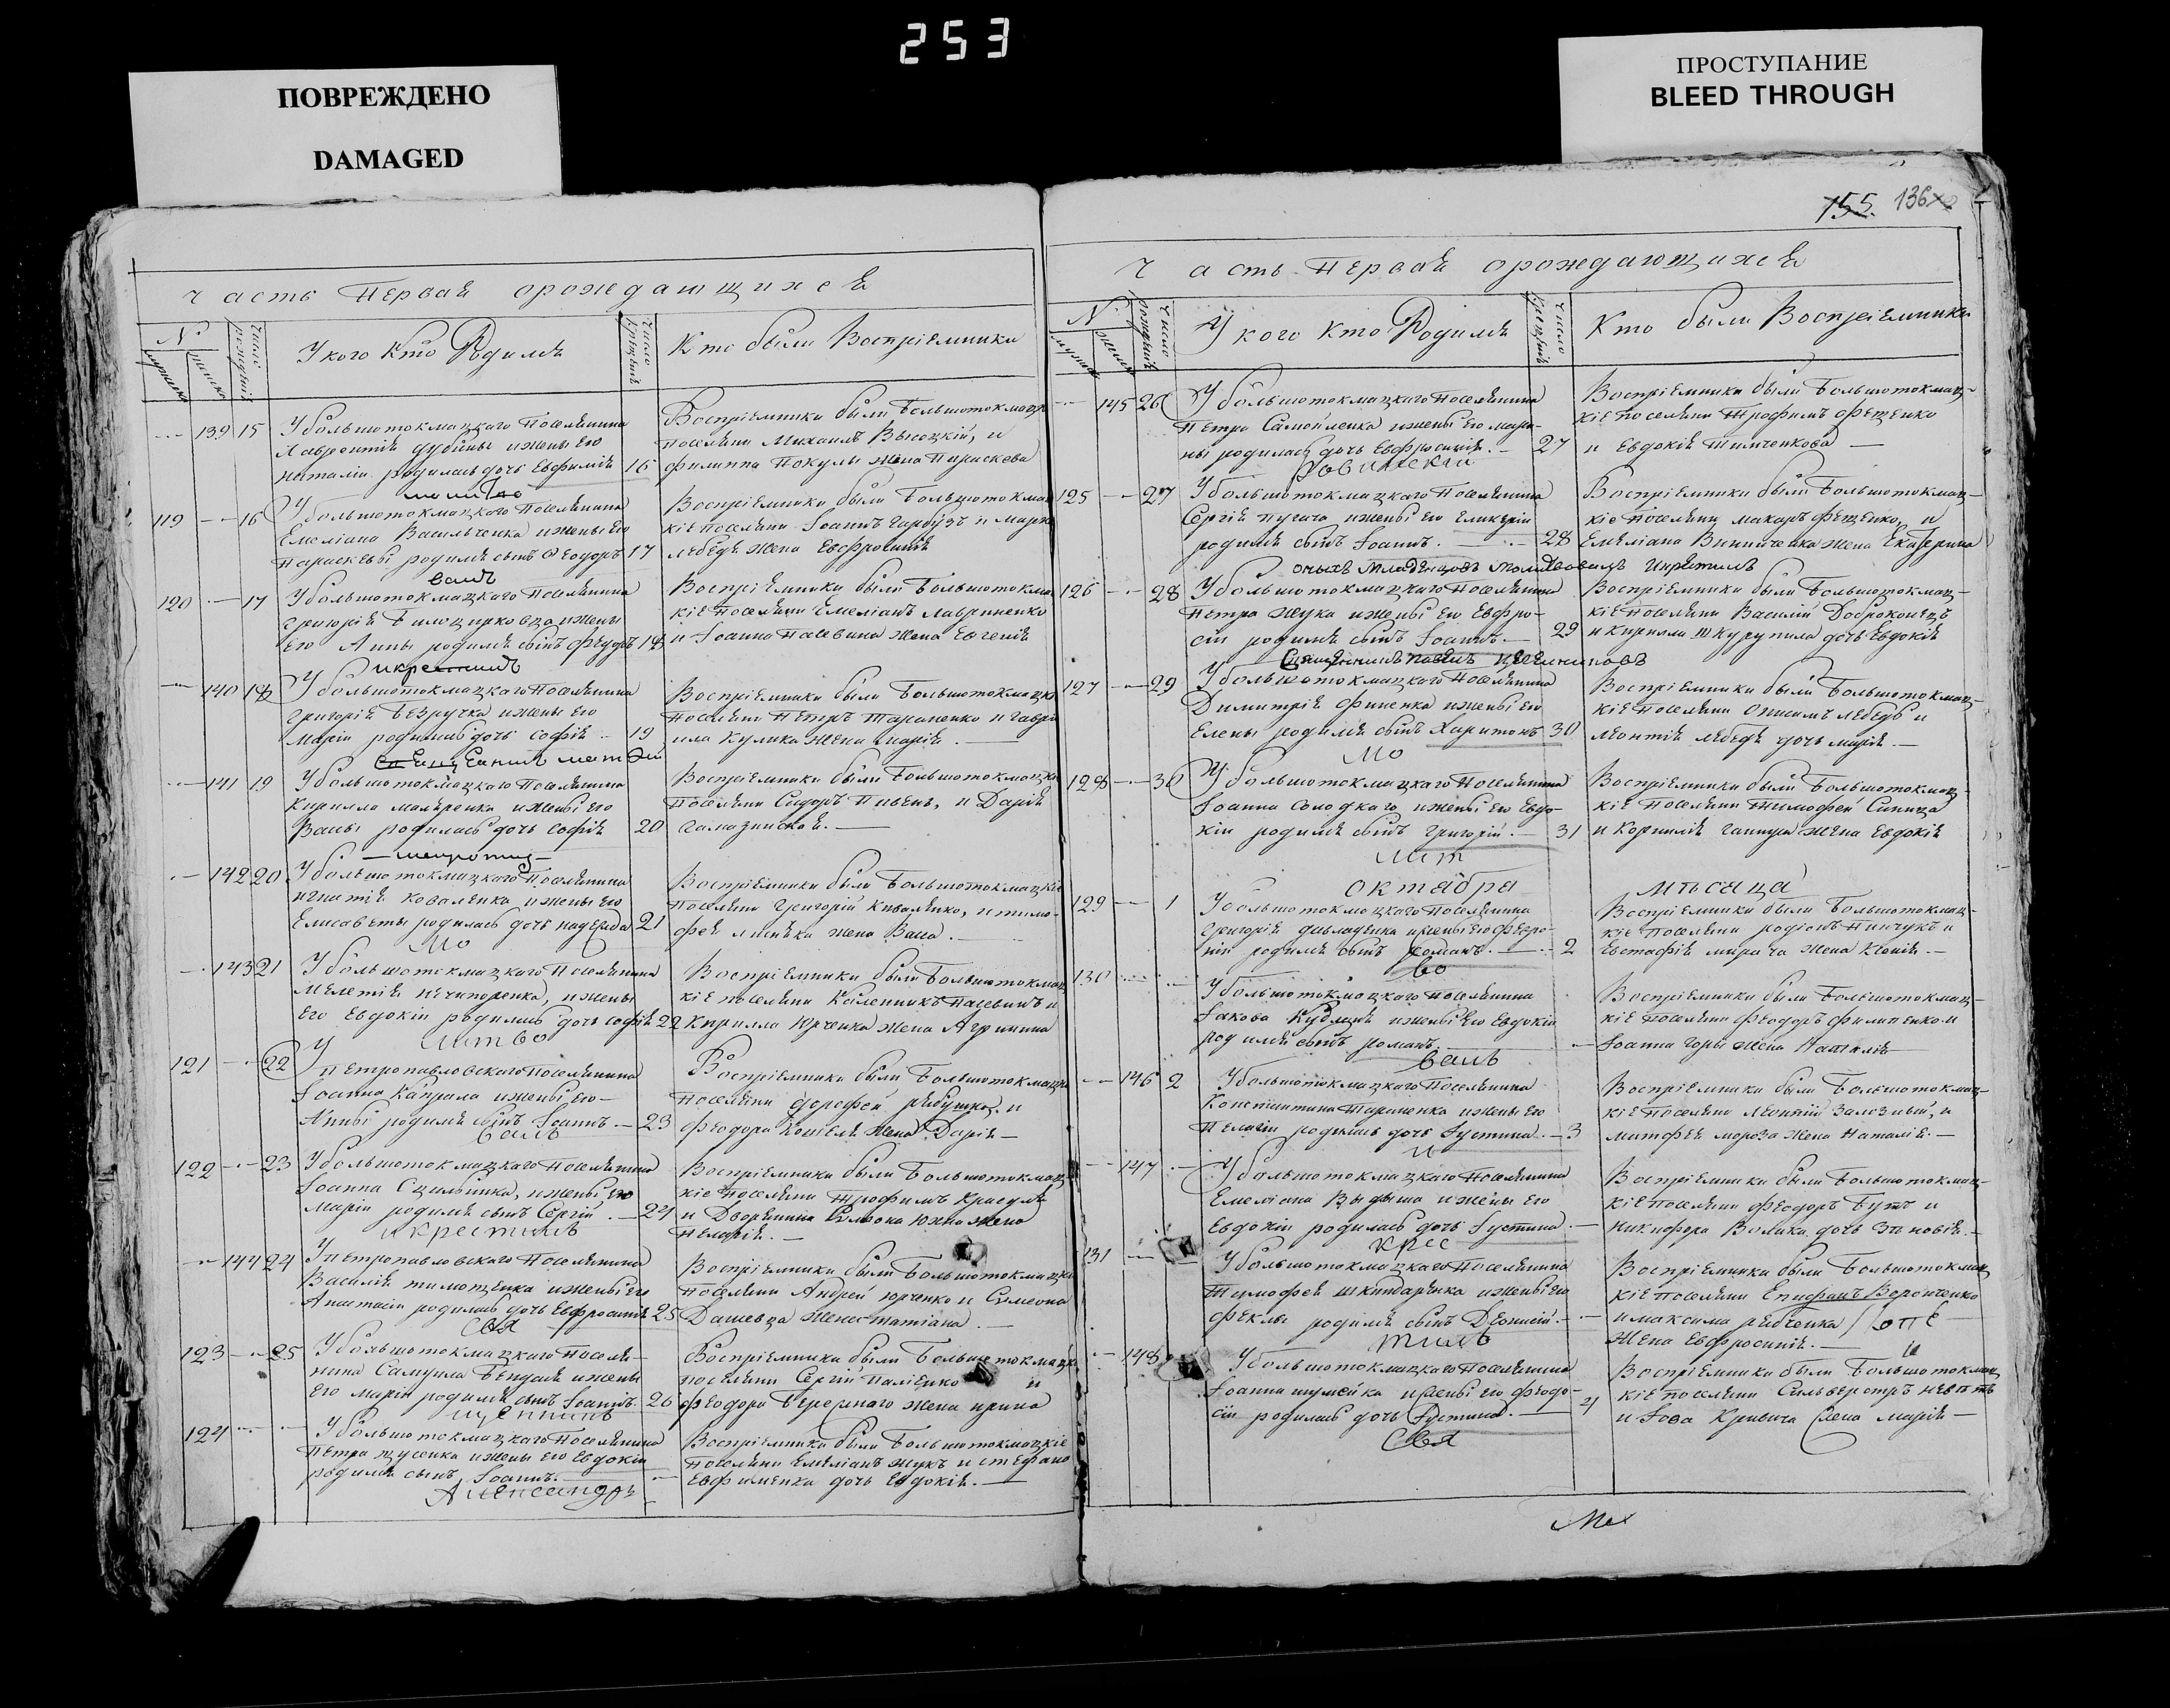 253
ПОВРЕЖДЕНО
DAMAGED
ПРОСТУПАНИЕ
BLEED THROUGH
часть Первая орождающихся
N
У кого Кто Родился
Кто были Воспріемники
139 15 У большотокмацкаго Поселянина
Лаврентія дубины ижены Его
Наталіи родилась дочь Евфимія 16
Воспріемники были Большотокмацкіе
поселяни Михаилъ Высоцкій, и
филиппа Покулы жена Параскева
119 16 У большотокмацкаго Поселянина
Емеліана Васильченка ижены Его
Параскевы родился сынъ Ѳеодоръ 17
Воспріемники были Большотокмац
кіе поселяни Іоаннъ Гарбузъ и Марка
лебедя жена Евфросинія
валъ
120 17 У большотокмацкаго Поселянина
Григорія Билоцирковца ижены
Его Анны родился сынъ Ѳеодоръ 18
Воспріемники были Большотокмац
кіе поселяни Емеліанъ Лавриненко
и Іоанна Пасевина жена Евгенія
икрестилъ
140 18 У большотокмацкаго Поселянина
Григорія Безручка ижены Его
Маріи родилась дочь Софія 19
Воспріемники были Большотокмацкіе
поселяни Петръ Тараненко и Гаври
ила Кулика жена Марія
141 19 У большотокмацкаго Поселянина
Кирилла маляренка ижены Его
Вассы родилась дочь Софія 20
Воспріемники были Большотокмацкіе
поселяни Сидоръ Пивень, и Дарія
142 20 У большотокмацкаго Поселянина
игнатія коваленка ижены Его
Елисаветы родилась дочь надежда 21
Воспріемники были Большотокмацкіе
поселяни Григорій Коваленко, и тимо-
фея жена Васса
мо
143 21 У большотокмацкаго Поселянина
Мелетія нечипоренка, ижены
Его Евдокіи родилась дочь софія 22
Воспріемники были Большотокмац
кіе поселяни Каленникъ Пасевинъ и
Кирилла Юрченка жена Агрипина
литво
121 22 У Петропавловскаго Поселянина
Іоанна Капрала ижены Его
Анны родился сынъ Іоаннъ 23
Воспріемники были Большотокмацкіе
поселяни дорофей рябушка и
Ѳеодора жена Дарія
валъ
122 23 У большотокмацкаго Поселянина
Іоанна ижены Его
Маріи родился сынъ Сергій 24
Воспріемники были Большотокмац
кіе поселяни Трофимъ
и Дворянина Юхно жена
Пелагія
икрестилъ
144 24 У петропавловскаго Поселянина
Василія тимошенка ижены Его
Анастасіи родилась дочь Евфросинія 25
Воспріемники были Большотокмацкіе
поселяни Андрей Юрченко и Симеона
Дашевца жена татіана
Свя
123 25 У большотокмацкаго Поселя-
нина Самуила Бендаля ижены
Его Маріи родился сынъ Іоаннъ 26
Воспріемники были Большотокмацкіе
поселяни Сергій Паліенко и
Ѳеодора Бережнаго жена ирина
щенникъ
124 У большотокмацкаго Поселянина
Петра гусенка ижены Его Евдокіи
родился сынъ Іоаннъ
Воспріемники были Большотокмацкіе
поселяни Емеліанъ Жукъ и стефана
Евфименка дочь Евдокія
Александръ
155. 136
часть Первая орождающихся
N
У кого Кто Родился
Кто были Воспріемники
145 26 У большотокмацкаго Поселянина
Петра Самойленка ижены Его мари-
ны родилась дочь Евфросинія 27
Воспріемники были Большотокмац-
кіе поселяни Трофимъ Фещенко
и Евдокія Тимченкова
125 27 У большотокмацкаго Поселянина
Сергія пугача ижены Его Гликеріи
родился сынъ Іоаннъ 28
Воспріемники были Большотокмац-
кіе поселяни макаръ Фещенко, и
Емеліана Винниченка жена Екатерина
оныхъ Младенцовъ Молитвовалъ Икрестилъ
126 28 У большотокмацкаго Поселянина
Петра жука ижены Его Евфро-
сіи родился сынъ Іоаннъ 29
Воспріемники были Большотокмац-
кіе поселяни Василій Доброконецъ
и Кирилла Шкурупила дочь Евдокія
Священникъ Павелъ
127 29 У большотокмацкаго Поселянина
Димитрія Финенка ижены Его
Елены родился сынъ Харитонъ 30
Воспріемники были Большотокмац-
кіе поселяни Онисимъ лебедь и
леонтія лебедя дочь марія
мо
128 30 У большотокмацкаго Поселянина
Іоанна Солодкаго ижены Его Евдо-
кіи родился сынъ Григорій 31
Воспріемники были Большотокмац-
кіе поселяни Тимофей Синица
и Корнилія ганнуса жена Евдокія
лит
октября мѣсяца
129 1 У большотокмацкаго Поселянина
Григорія ижены Его Февро-
ніи родился сынъ романъ 2
Воспріемники были Большотокмац-
кіе поселяни родіонъ Пинчукъ и
Евстафія мирача жена Ксенія
во
130 У большотокмацкаго Поселянина
Іакова ижены Его Евдокіи
родился сынъ романъ
Воспріемники были Большотокмац-
кіе поселяни Ѳеодоръ филипенко и
Іоанна горы жена Наталія
валъ
146 2 У большотокмацкаго Поселянина
Константина Тараненка ижены Его
Пелагіи родилась дочь Іустина 3
Воспріемники были Большотокмац-
кіе поселяни Леонтій Залозный, и
матфея мороза жена Наталія
и
147 У большотокмацкаго Поселянина
Емеліана Выдыша ижены Его
Евдокіи родилась дочь Іустина
Воспріемники были Большотокмац-
кіе поселяни Ѳеодоръ Бутъ и
никифора Волика дочь Зѣновія
крес
131 У большотокмацкаго Поселянина
Тимофея шкитаренка ижены Его
Феклы родился сынъ Діонисій
Воспріемники были Большотокмац
кіе поселяни Епифанъ Веронченко
и максима рябченка
жена Евфросинія
тилъ
148 У большотокмацкаго Поселянина
Іоанна шумейка ижены Его Ѳеодо-
сіи родилась дочь Іустина 4
Воспріемники были Большотокмац
кіе поселяни Сильверстръ
и Іова Кривича жена марія
Свя